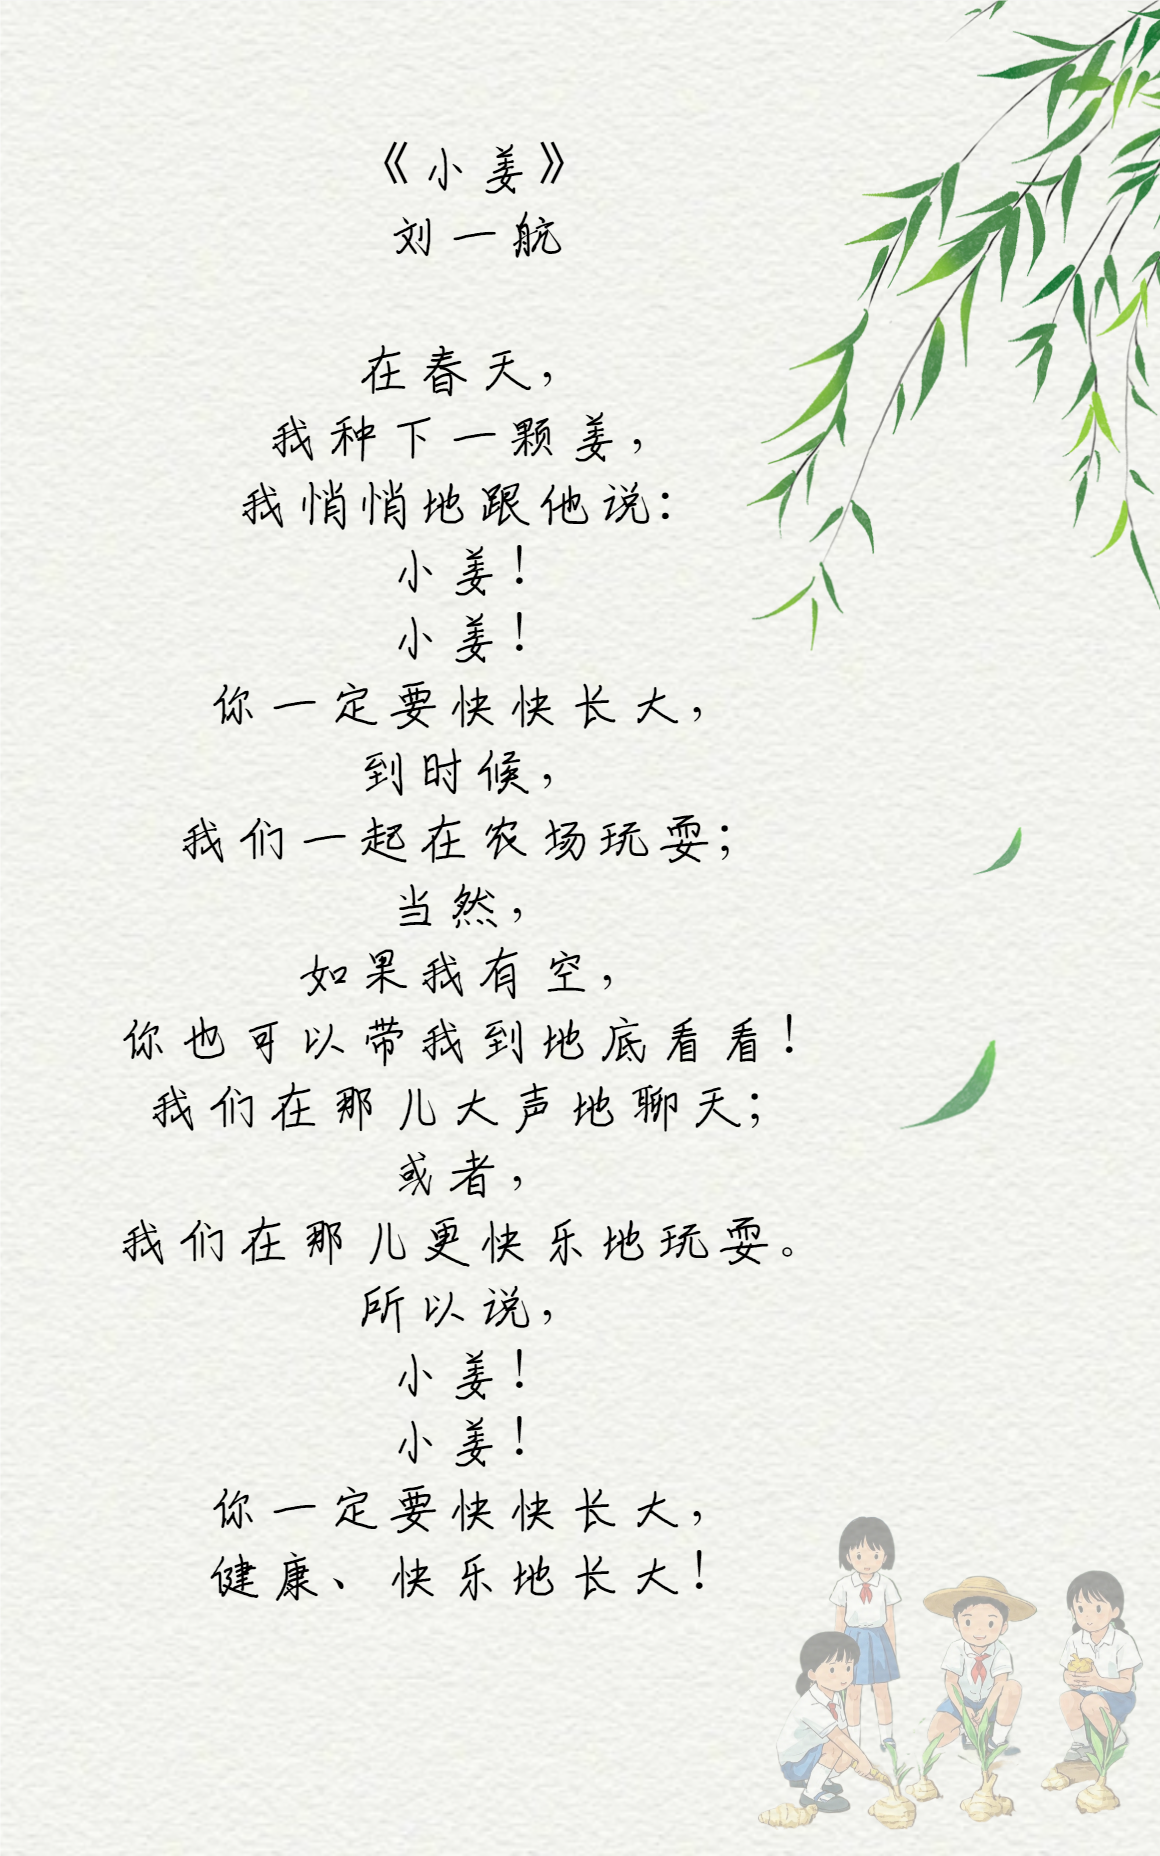 《小姜》
刘一航
在春天，
我种下一颗姜，
我悄悄地跟他说：
小姜！
小姜！
你一定要快快长大，
到时候，
我们一起在农场玩耍；
当然，
如果我有空，
你也可以带我到地底看看！
我们在那儿大声地聊天；
或者，
我们在那儿更快乐地玩耍。
所以说，
小姜！
小姜！
你一定要快快长大，
健康、快乐地长大！